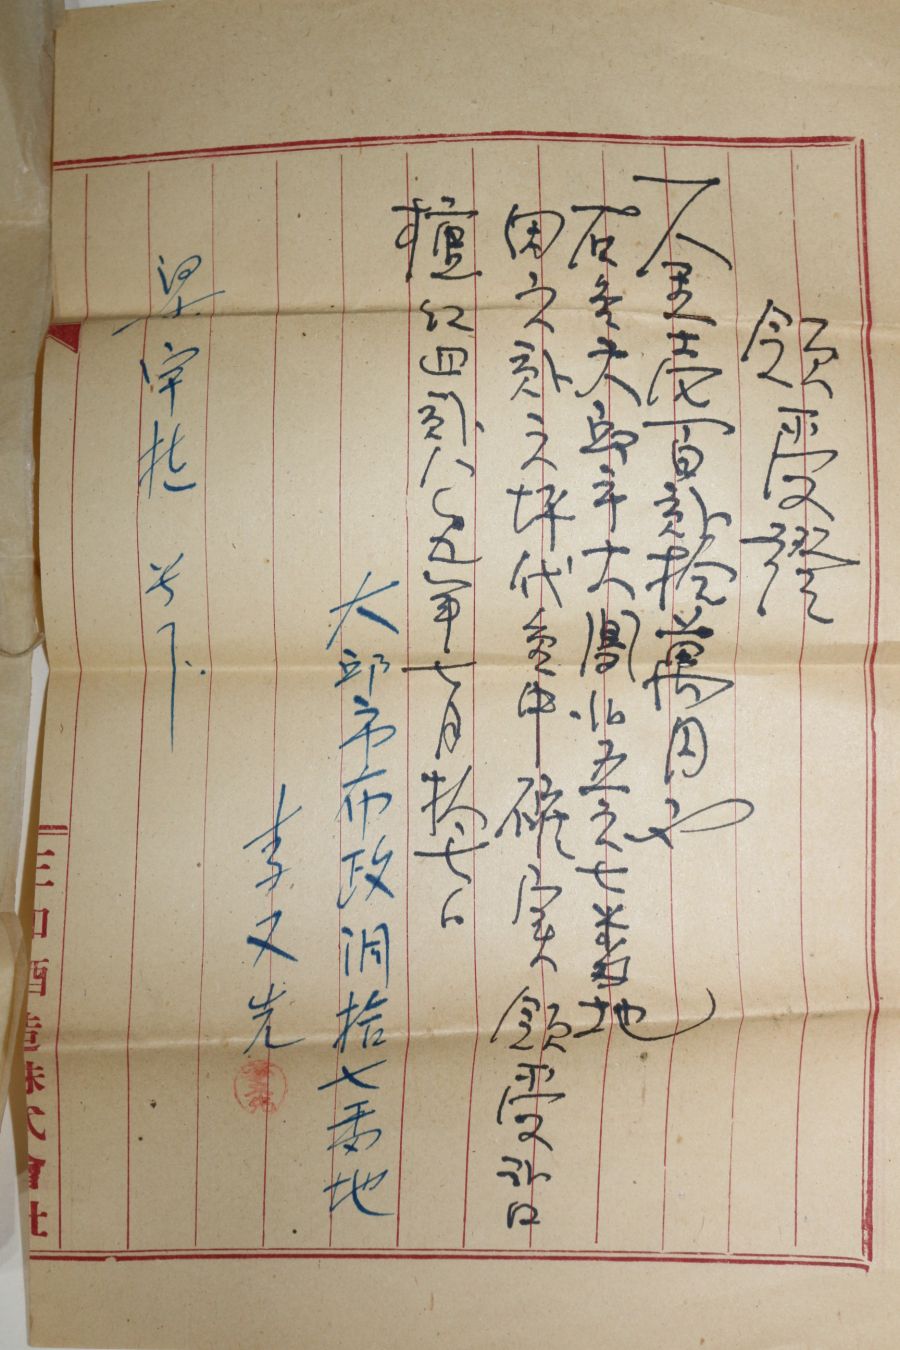 領受證
一金壹百貳拾萬円也
右金大邱市大鳳 五之七番地
坪代金中確実領受
檀紀四貳八五年七月拾七日
大邱市布政洞拾七番地
李又光
梁宰 下
三和酒造株式會社